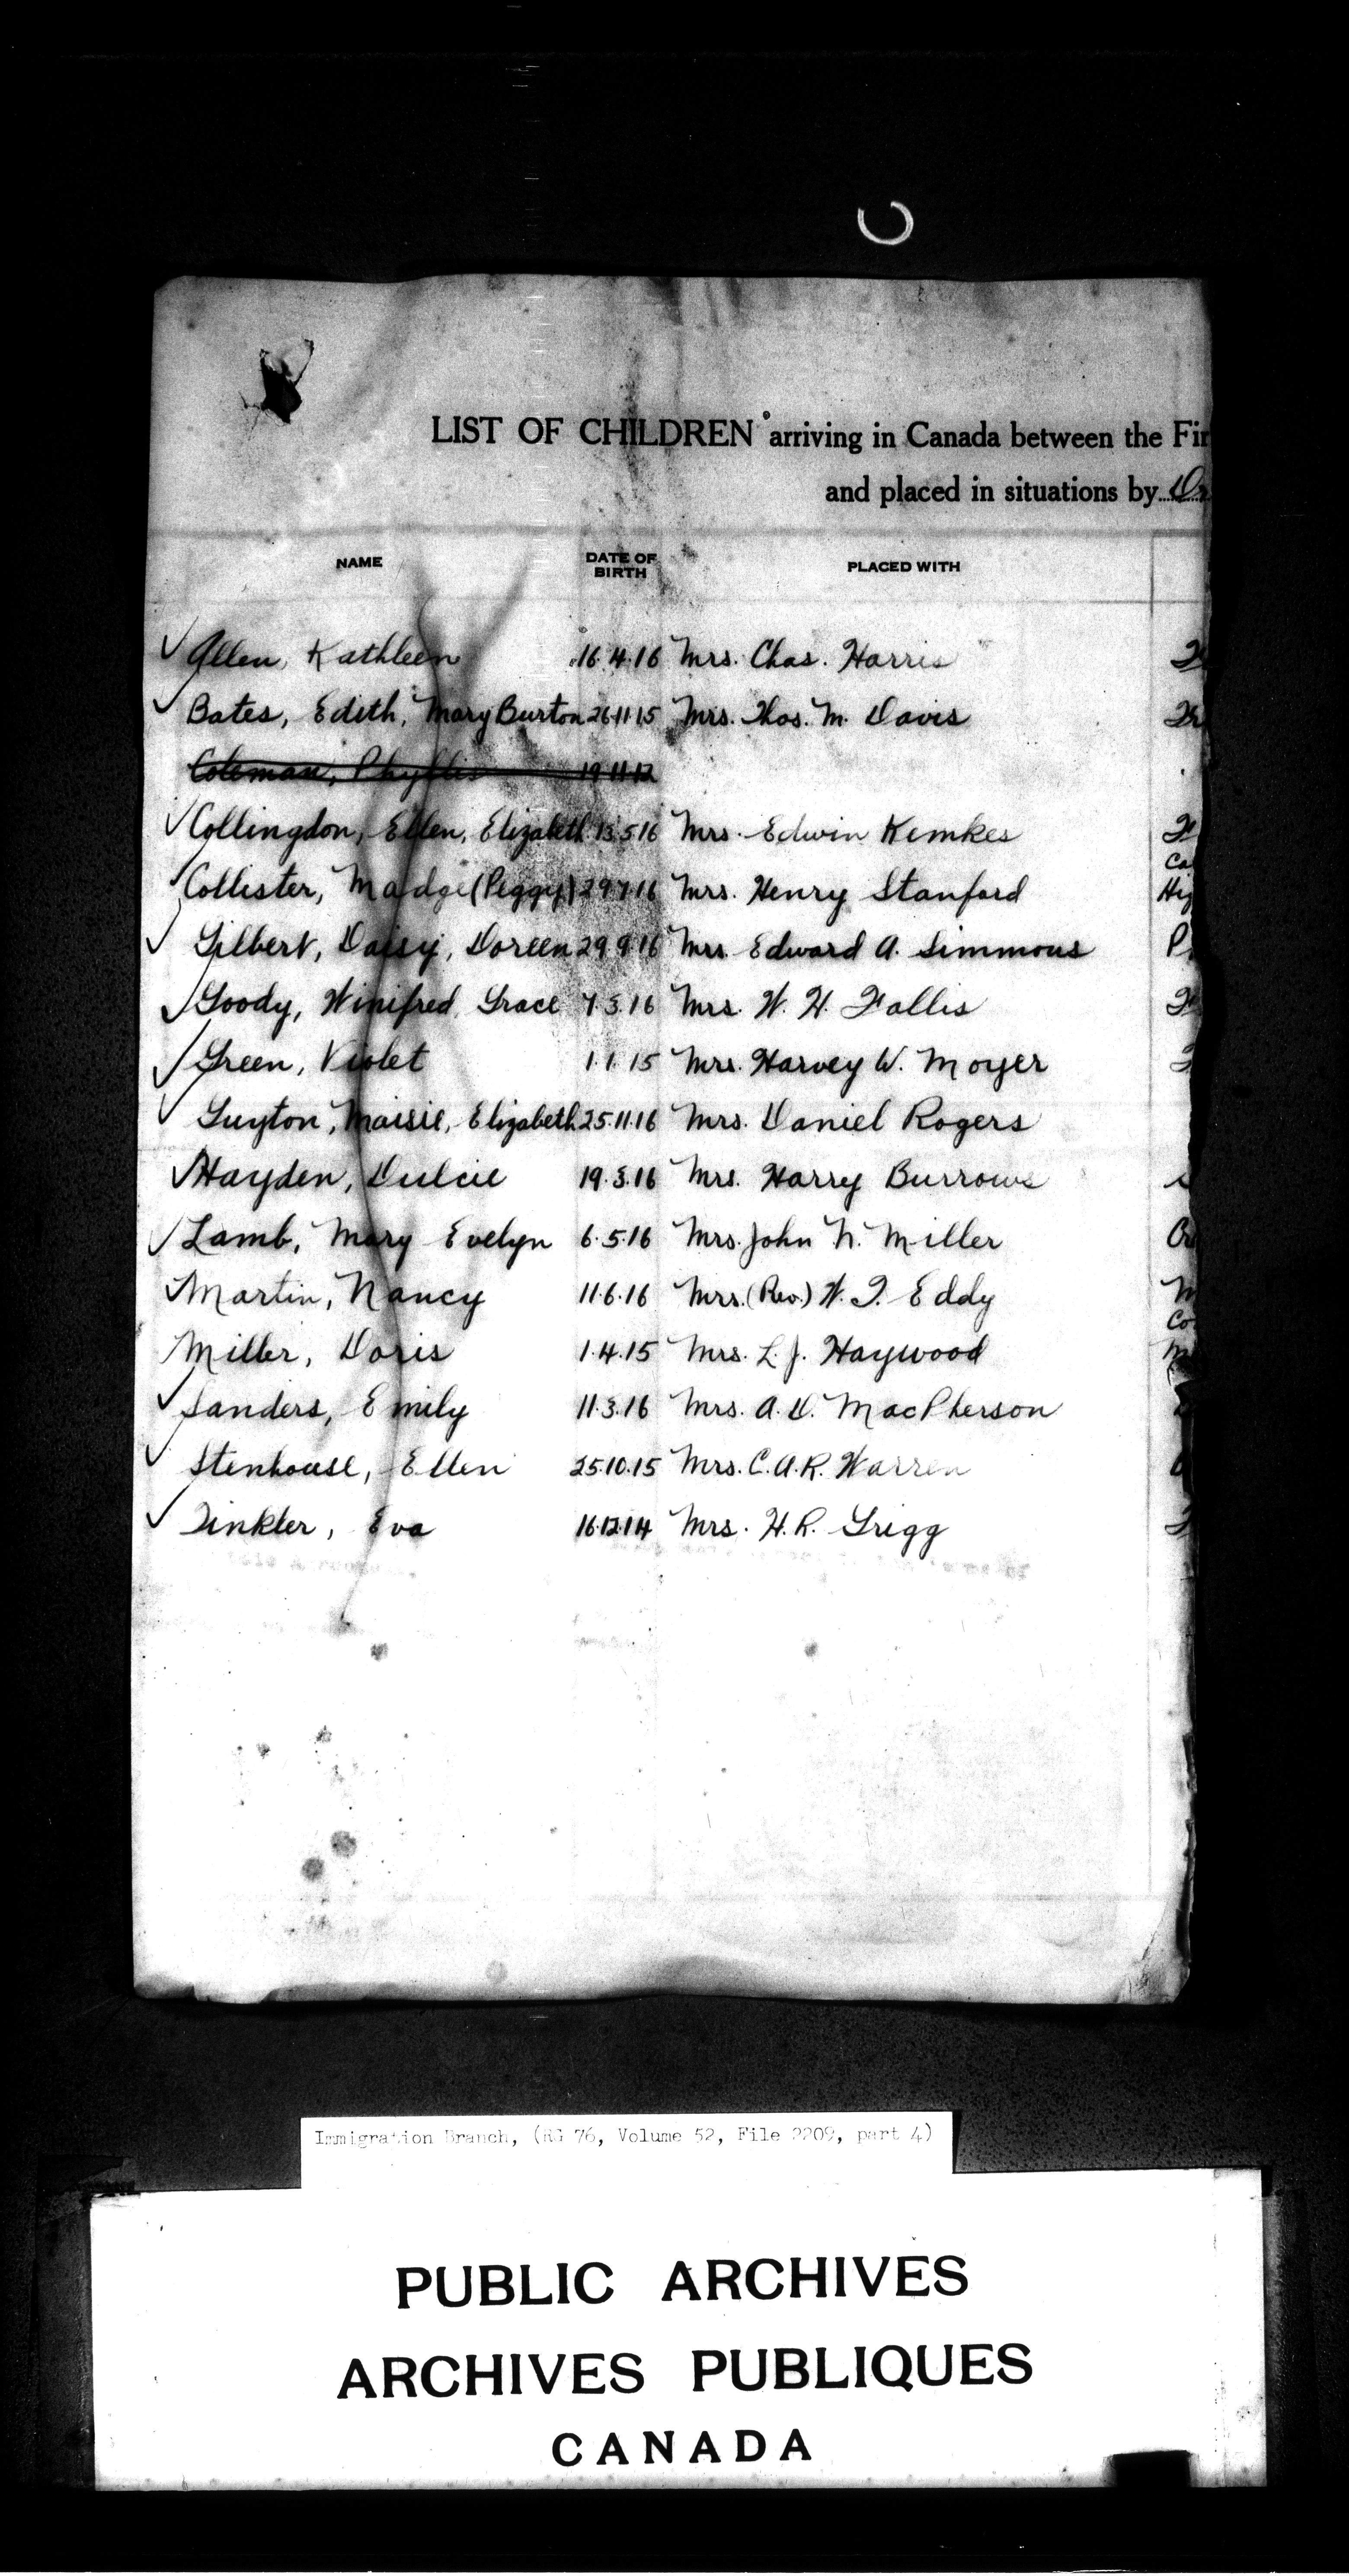 LIST OF CHILDREN arriving in Canada between the Fir
and placed in situations by
NAME
DATE OF BIRTH
PLACED WITH
Allen, Kathleen 16.4.16 Mrs. Chas. Harris
Bates, Edith, Mary Burton 26.11.15 Mrs. Thos. M. Davis
Coleman, Phyllis 19.11.12
Collingdon, Ellen, Elizabeth 13.5.16 Mrs. Edwin Kemkes
Collister, Madge (Peggy) 29.7.16 Mrs. Henry Stanford
Gilbert, Daisy, Doreen 29.9.16 Mrs. Edward A. Simmons
Goody, Winifred Grace 7.3.16 Mrs. W. H. Fallis
Green, Violet 1.1.15 Mrs. Harvey W. Moyer
Guyton, Maisie, Elizabeth 25.11.16 Mrs. Daniel Rogers
Hayden, Dulcie 19.3.16 Mrs. Harry Burrows
Lamb, Mary Evelyn 6.5.16 Mrs. John N. Miller
Martin, Nancy 11.6.16 Mrs. (Rev.) W. T. Eddy
Miller, Doris 1.4.15 Mrs. L. J. Haywood
Sanders, Emily 11.3.16 Mrs. A. D. MacPherson
Stenhouse, Ellen 25.10.15 Mrs. C. A. R. Warren
Tinkler, Eva 16.12.14 Mrs. H. R. Grigg
Immigration Branch, (RG 76, Volume 52, File 2209, part 4)
PUBLIC ARCHIVES
ARCHIVES PUBLIQUES
CANADA